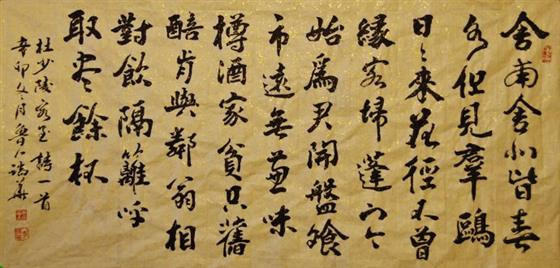 舍南舍北皆春
水但見羣鷗
日〻來花徑不曾
緣客掃蓬門今
始爲君開盤飧
市遠無兼味
樽酒家貧只舊
醅肯與鄰翁相
對飲隔籬呼
取盡餘杯
杜少陵客至詩一首
辛卯 月魯